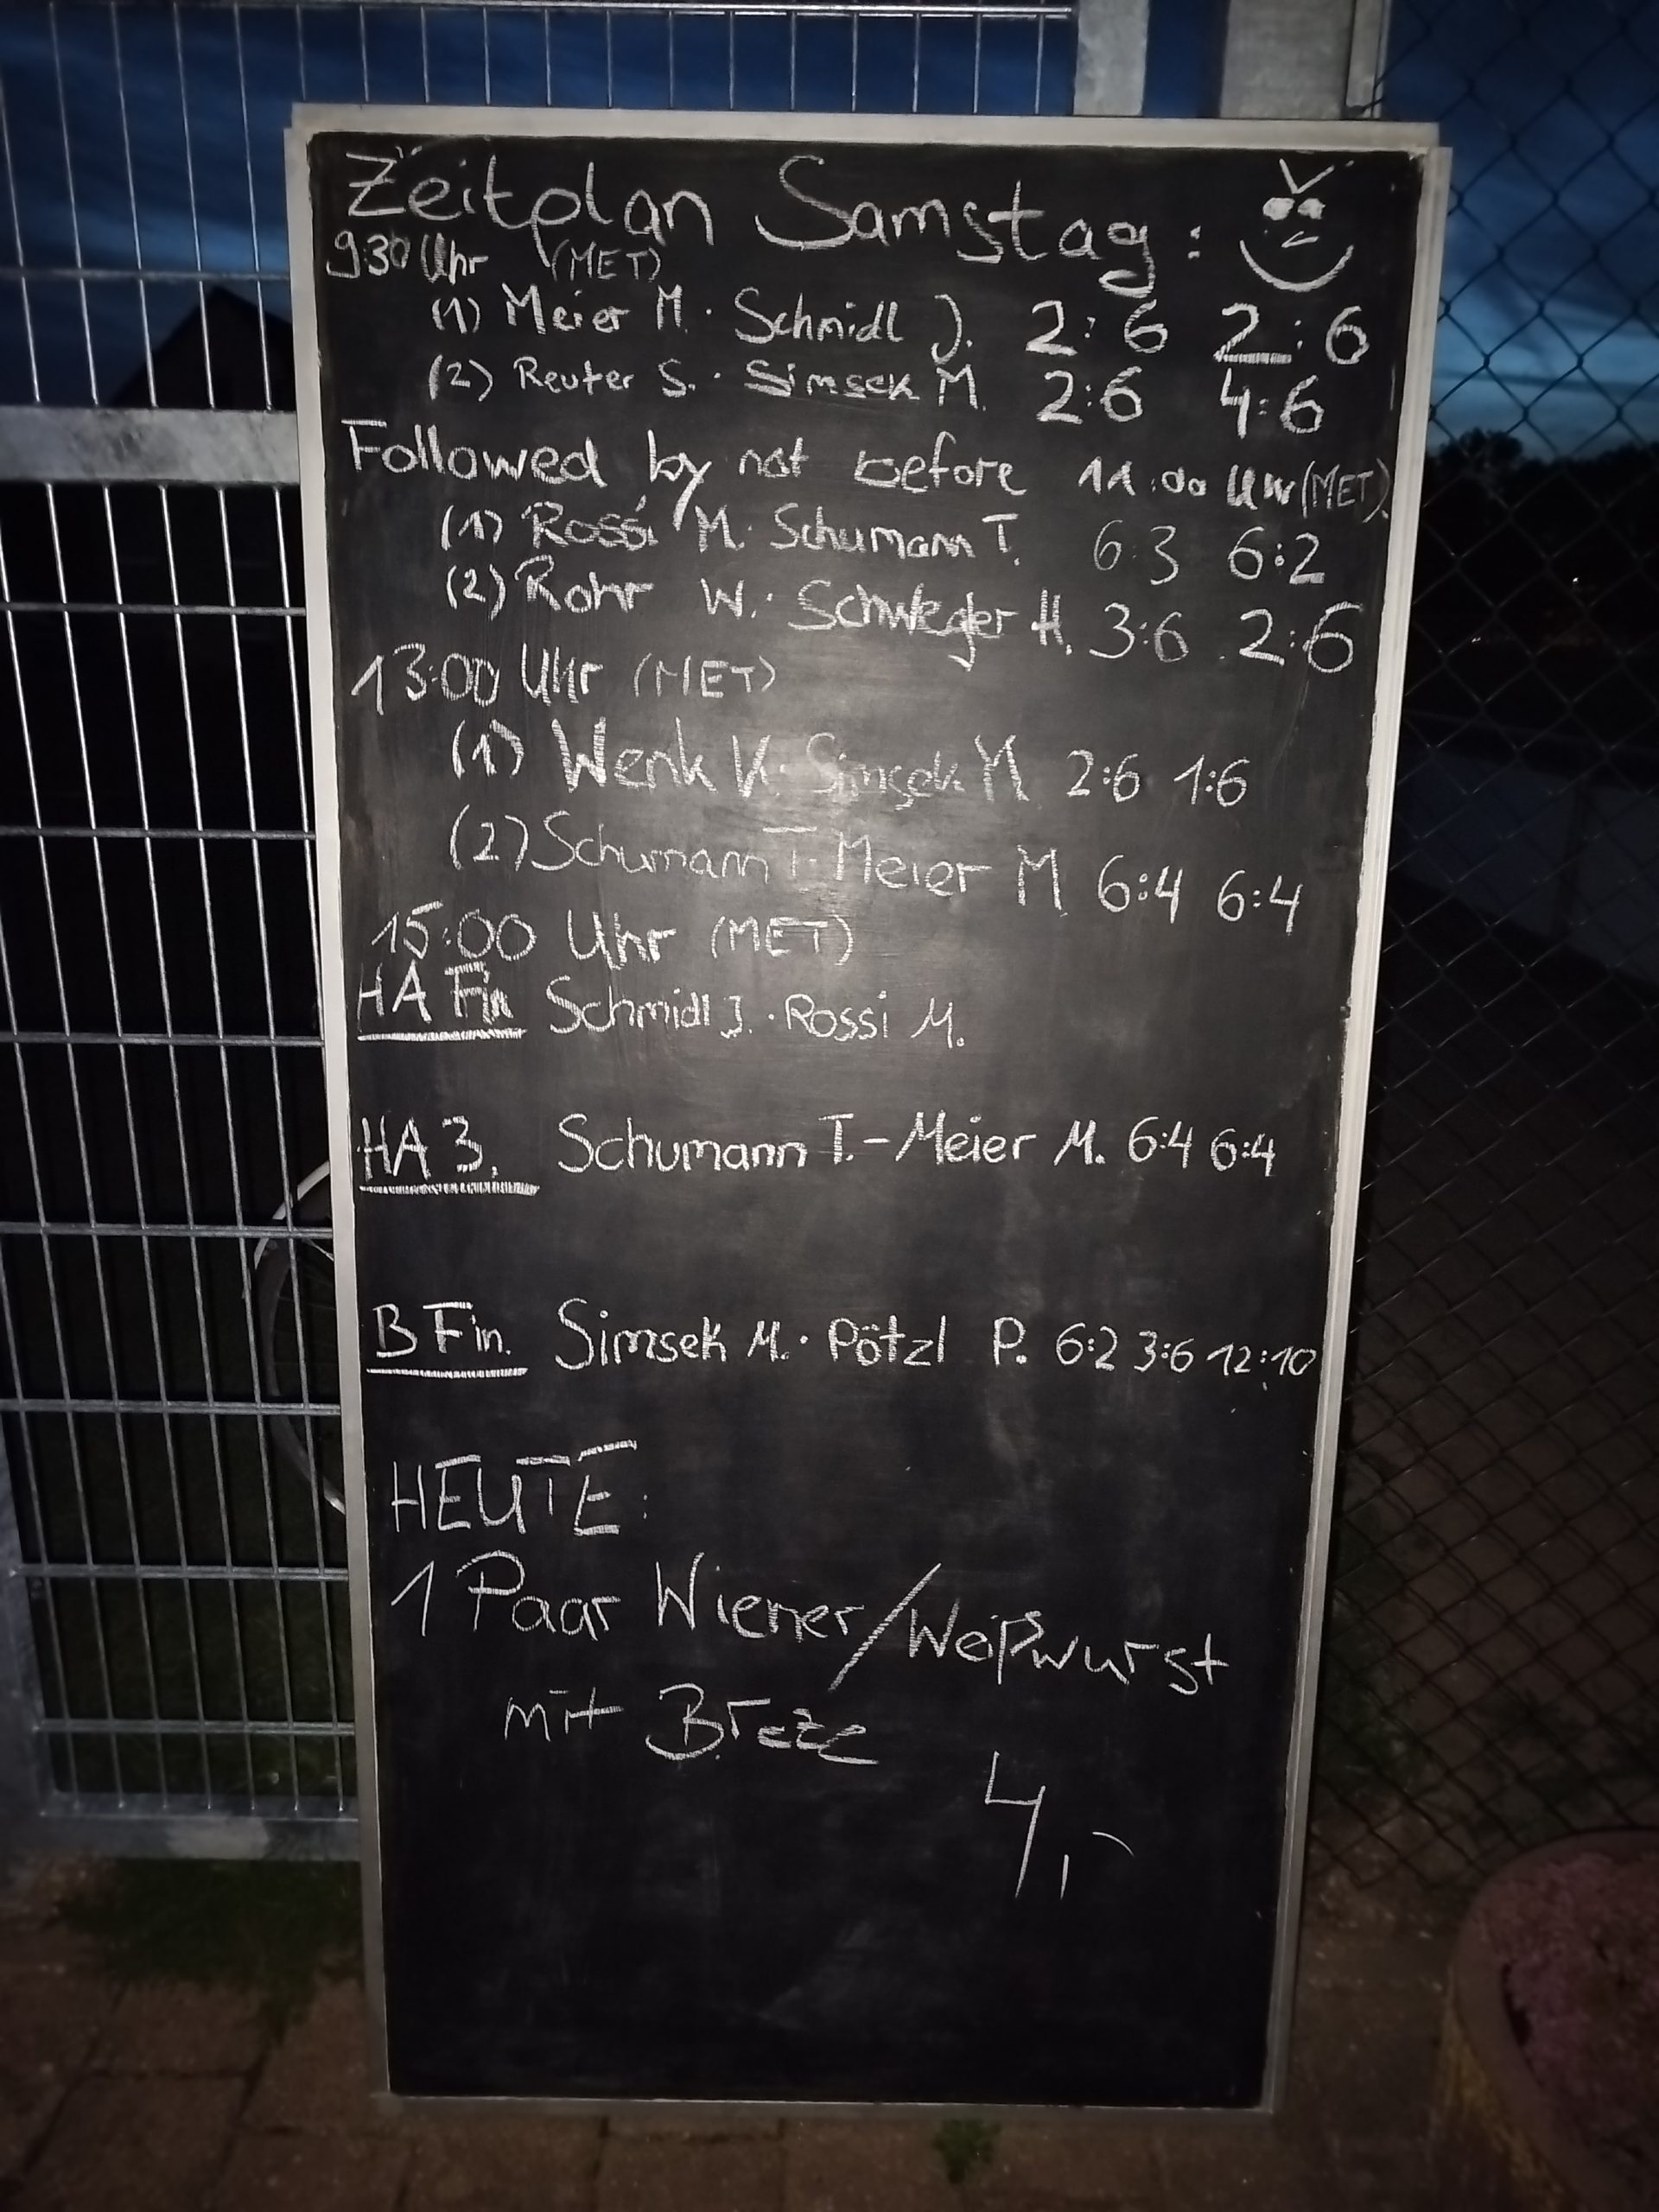 Zeitplan Samstag:
930 Uhr (MET)
(1) Meier M. · Schmidl J. 2:6 2:6
(2) Reuter S. · Simsek M. 2:6 4:6
Followed by not before 11:00 Uhr (MET)
(1) Rossi M. · Schumann T. 6:3 6:2
(2) Rohr W. · Schwegler H. 3:6 2:6
13:00 Uhr (MET)
(1) Wenk V. · Simsek M. 2:6 1:6
(2) Schumann T. · Meier M. 6:4 6:4
15:00 Uhr (MET)
HA Fin Schmidl J. · Rossi M.
HA 3. Schumann T. - Meier M. 6:4 6:4
B Fin. Simsek M. · Pötzl P. 6:2 3:6 12:10
HEUTE:
1 Paar Wiener/Weißwurst
mit Breze
4,-